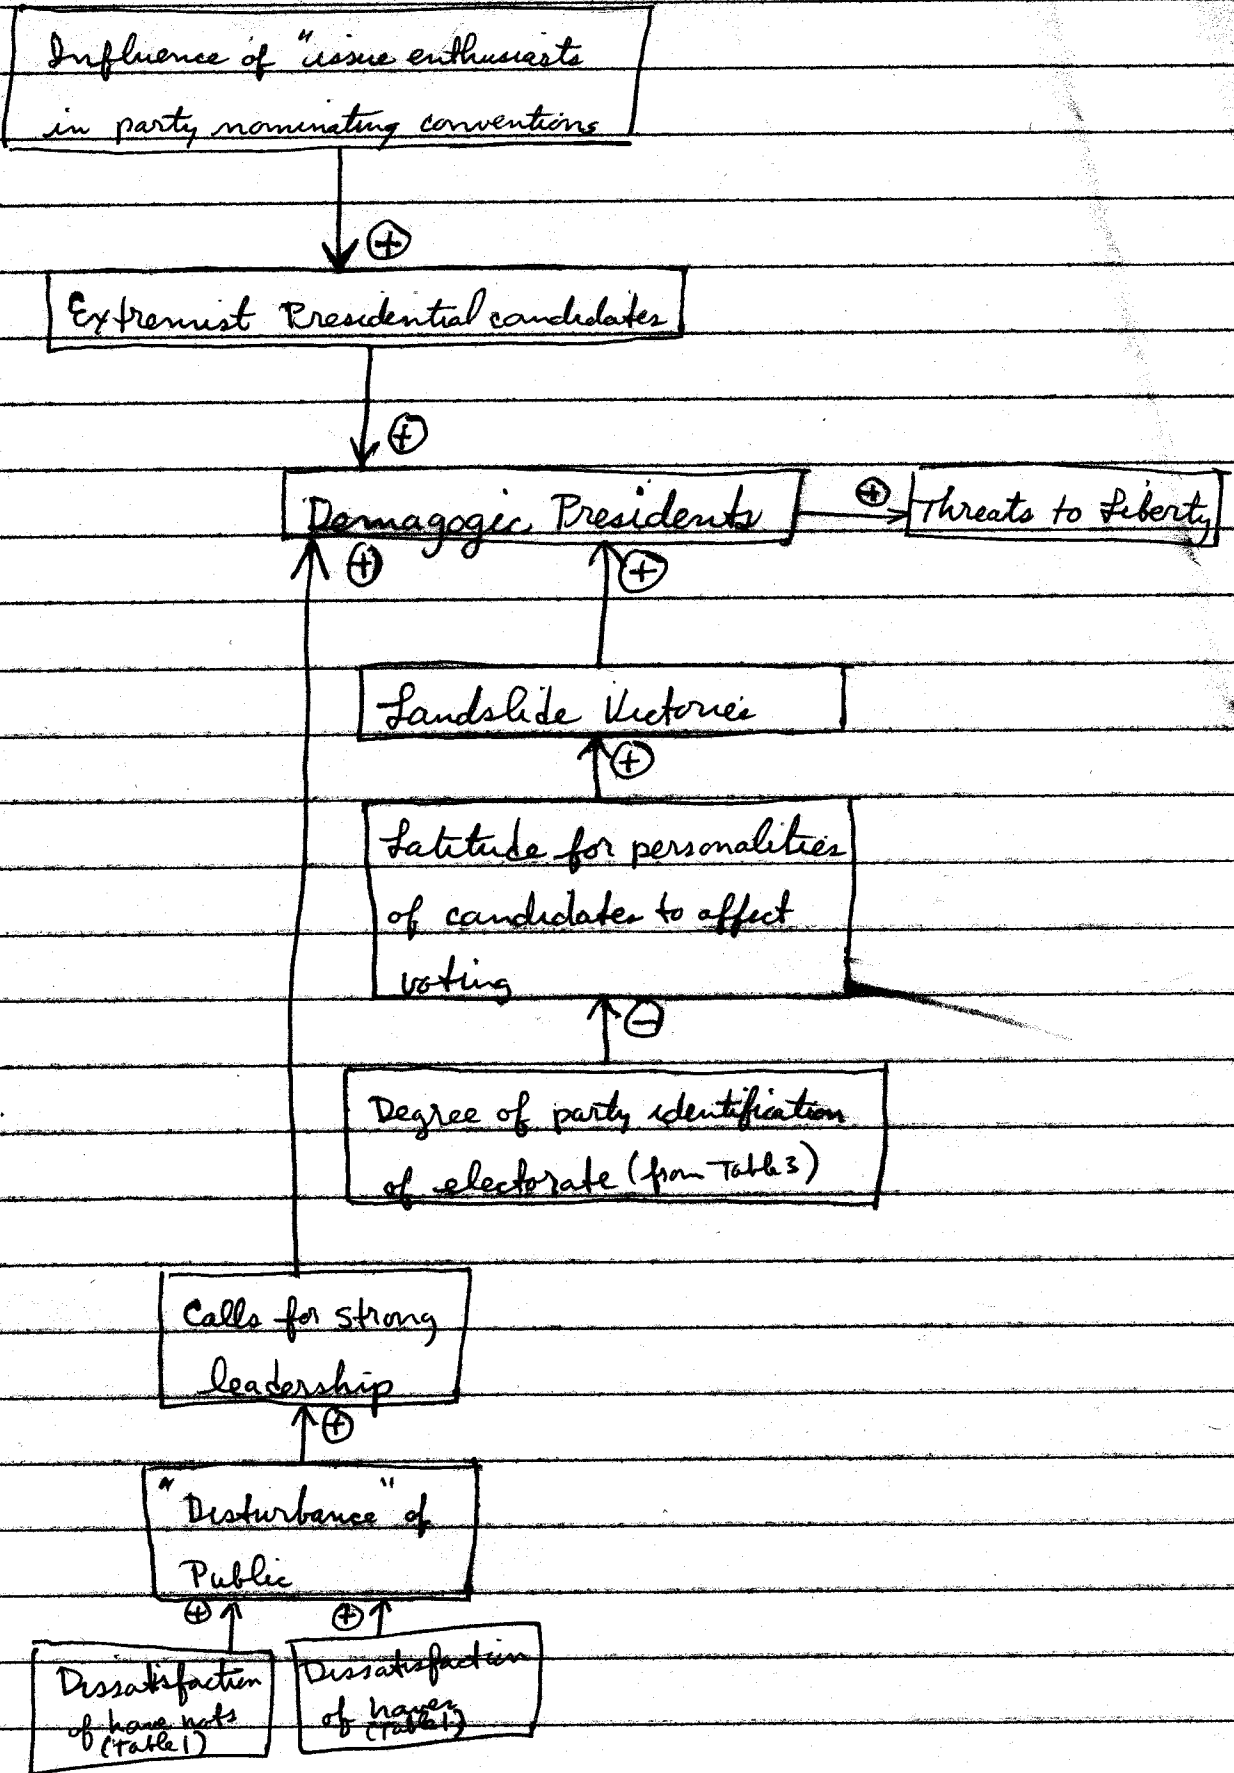 Influence of "issue enthusiasts
in party nominating conventions
⊕
Extremist Presidential candidates
⊕
Demagogic Presidents
⊕
Threats to Liberty
⊕
⊕
Landslide Victories
⊕
Latitude for personalities
of candidates to affect
voting
⊖
Degree of party identification
of electorate (from Table 3)
Calls for strong
leadership
⊕
"Disturbance" of
Public
⊕
⊕
Dissatisfaction
of have nots
(Table 1)
Dissatisfaction
of haves
(Table 1)